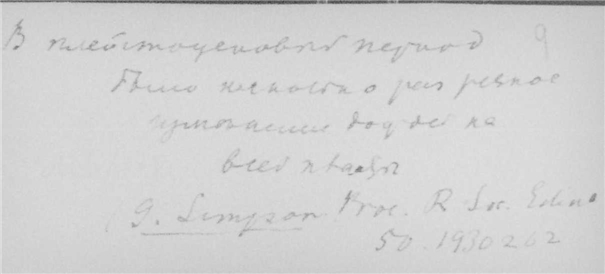 В плейстоценовый период 9
было несколько раз резкое
изменение дождей на
всей планете
G. Simpson Proc. R. Soc. Edinb
50. 1930 262